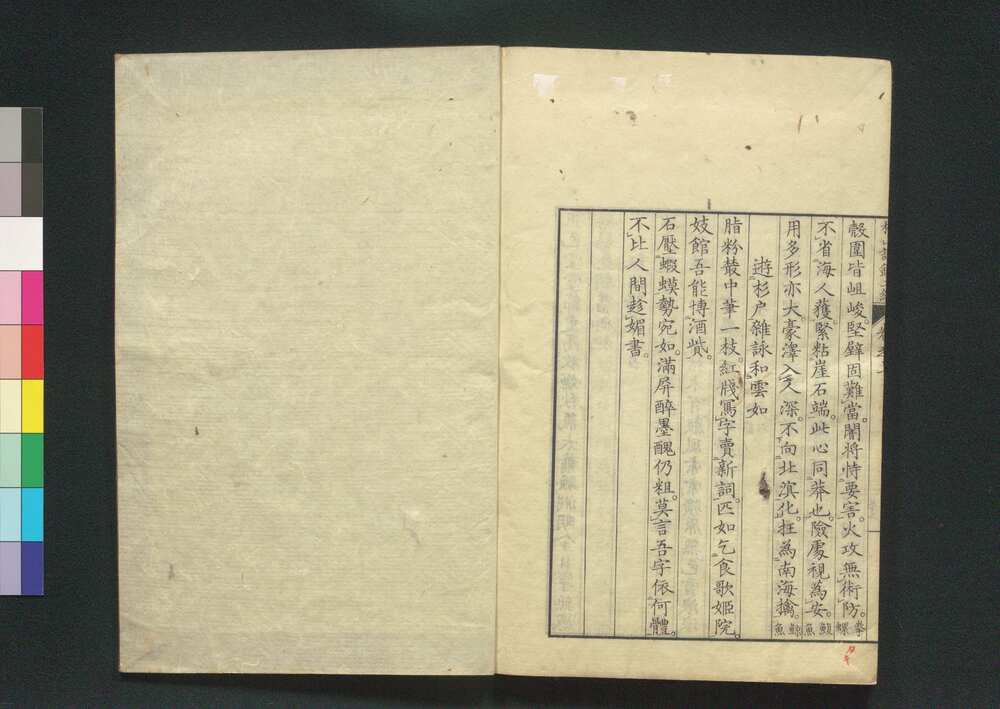 殼圍皆岨峻。堅壁固難當。闇將恃要害。火攻無術防。拳螺
不省海人獲。緊粘崖石端。此心同莽也。險處視為安。鰒魚
用多形亦大。豪澤入人深。不向北溟化。抂為南海擒。鯨魚
遊杉戶雜詠和雲如
脂粉叢中筆一枝。紅牋寫字賣新詞。匹如乞食歌姬院。
妓館吾能博酒貲。
石壓蝦蟆勢宛如。滿屏醉墨醜仍粗。莫言吾字依何體。
不比人間趁媚書。